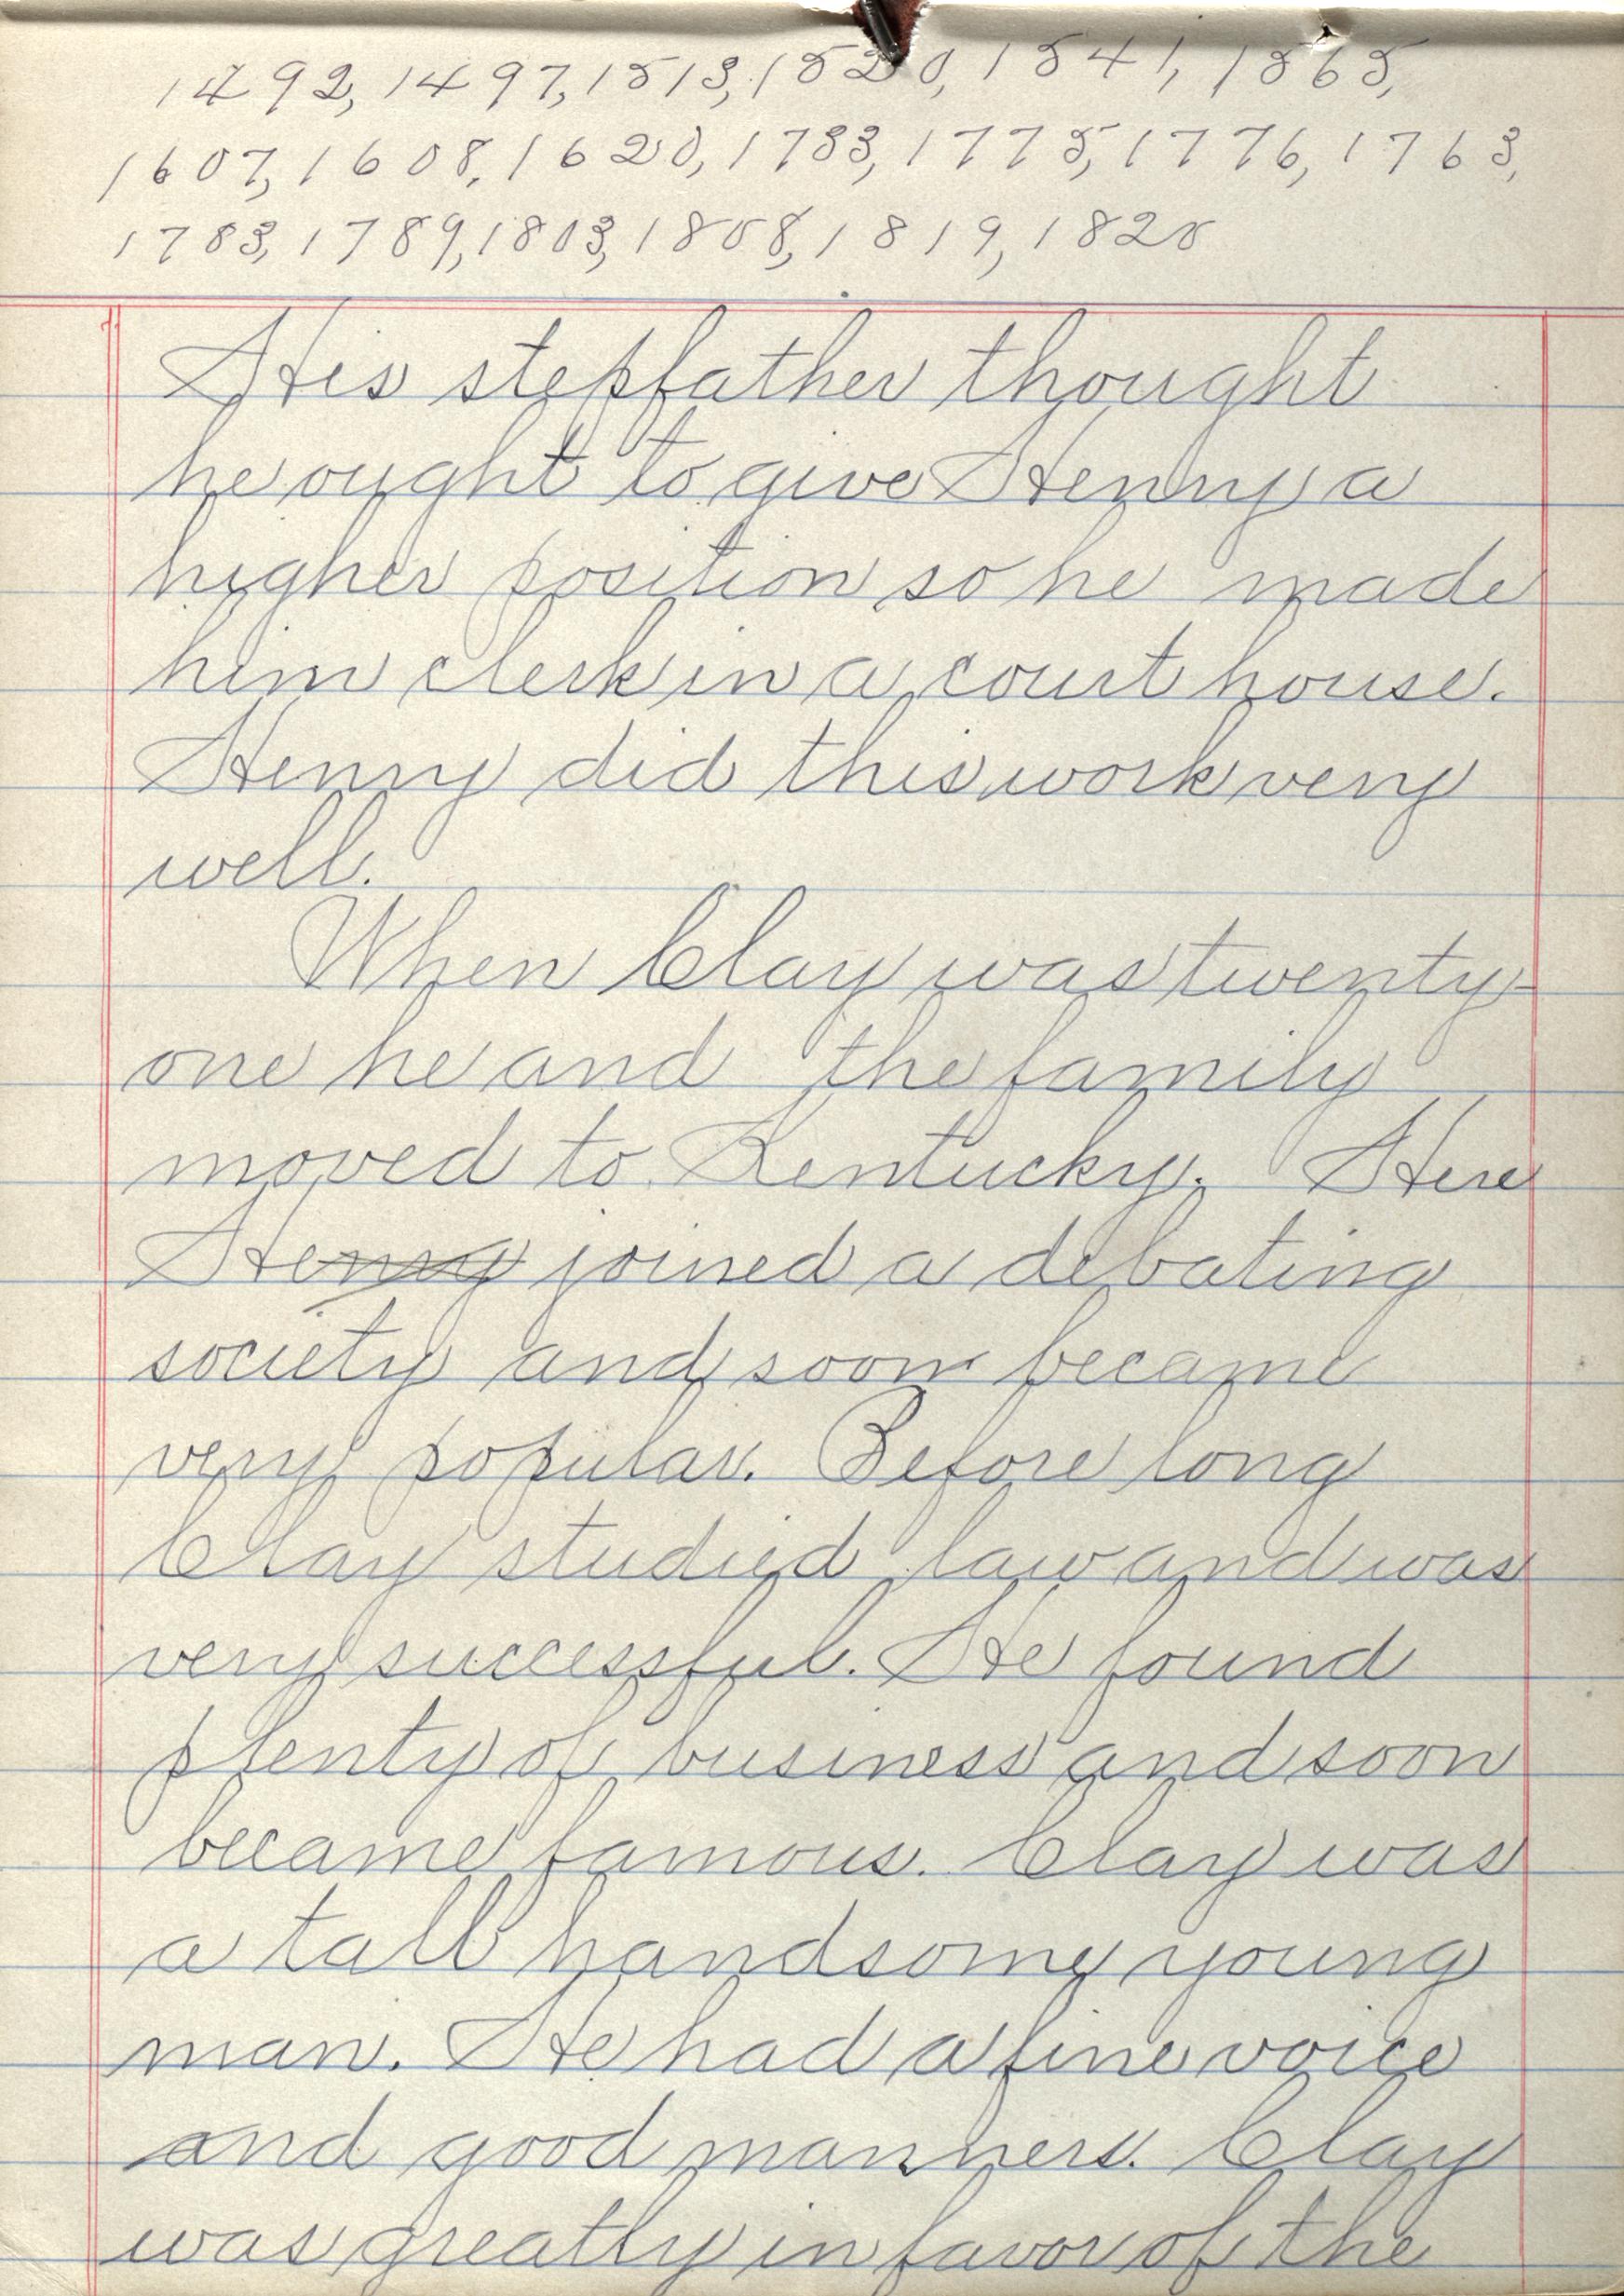 1492, 1497, 1513, 1520, 1541, 1565,
1607, 1608, 1620, 1733, 1775, 1776, 1763,
1783, 1789, 1803, 1808, 1819, 1820
His stepfather thought
he ought to give Henry a
higher position so he made
him clerk in a court house.
Henry did this work very
well.
When Clay was twenty-
one he and the family
moved to Kentucky. Here
Henry joined a debating
society and soon became
very popular. Before long
Clay studied law and was
very successful. He found
plenty of business and soon
became famous. Clay was
a tall handsome young
man. He had a fine voice
and good manners. Clay
was greatly in favor of the